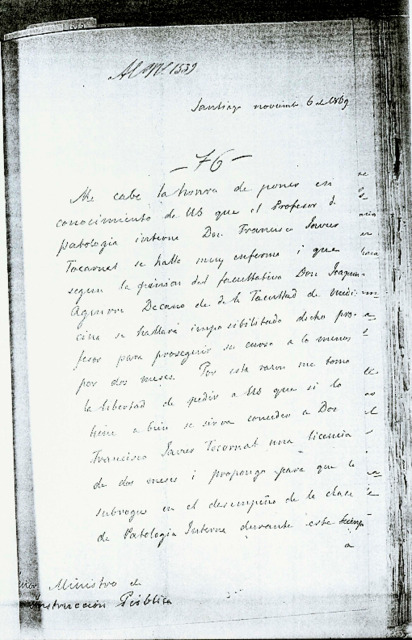 Al Nº 1339.
Santiago noviembre 6 de 1869
— 76 —
Me cabe la honra de poner en
conocimiento de US que el Profesor de
patolojia interna Don Francisco Javier
Tocornal se halla muy enfermo i que
segun la opinion del facultativo Don Joaquin
Aguirre Decano de la Facultad de Medi-
cina se hallará imposibilitado dicho pro-
fesor para proseguir su curso a lo menos
por dos meses. Por esta razon me tomo
la libertad de pedir a US que si lo
tiene a bien se sirva conceder a Don
Francisco Javier Tocornal una licencia
de dos meses i propongo para que le
subrogue en el desempeño de la clase
de Patolojia Interna durante este tiempo
a
Ministro de
Instruccion Pública